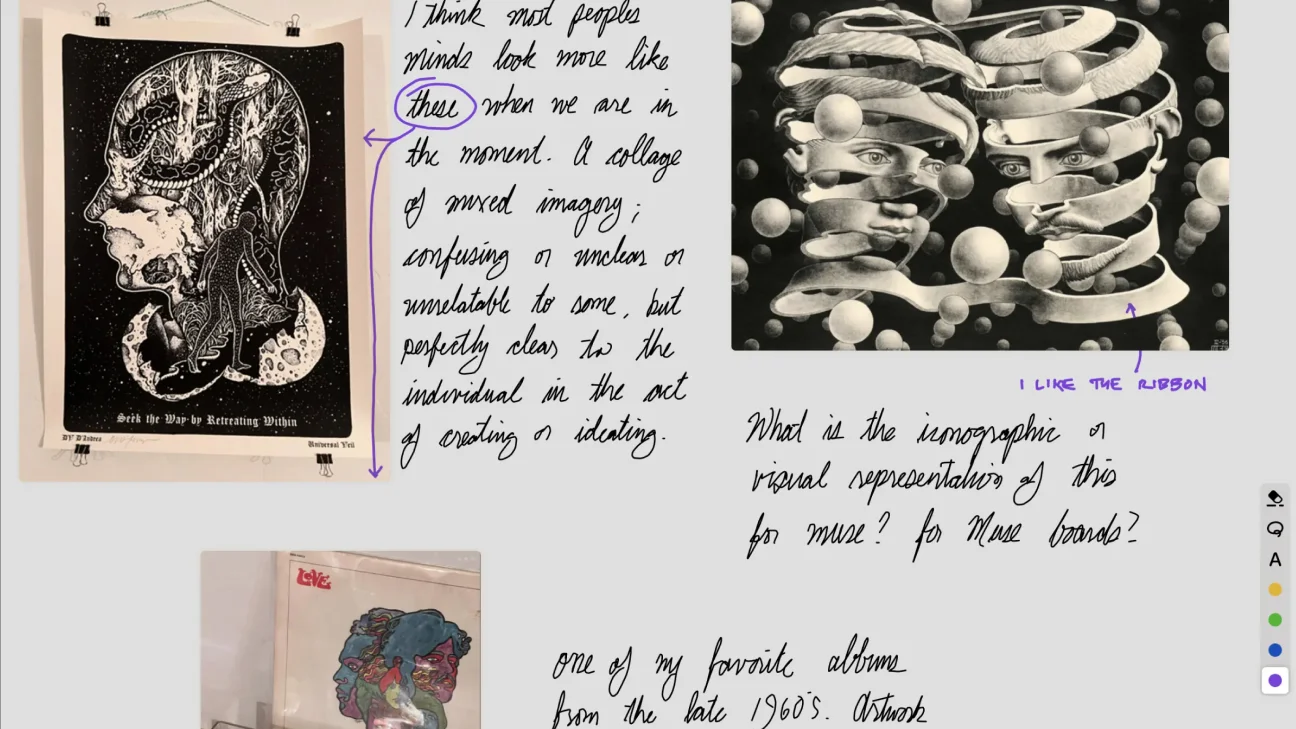 I think most peoples
minds look more like
these when we are in
the moment. A collage
of mixed imagery;
confusing or unclear or
unrelatable to some, but
perfectly clear to the
individual in the act
of creating or ideating.
Seek the Way by Retreating Within
DV D'Andrea
Universal Veil
I LIKE THE RIBBON
What is the iconographic or
visual representation of this
for muse? for Muse boards?
A
LOVE
one of my favorite albums
from the late 1960's. Artwork